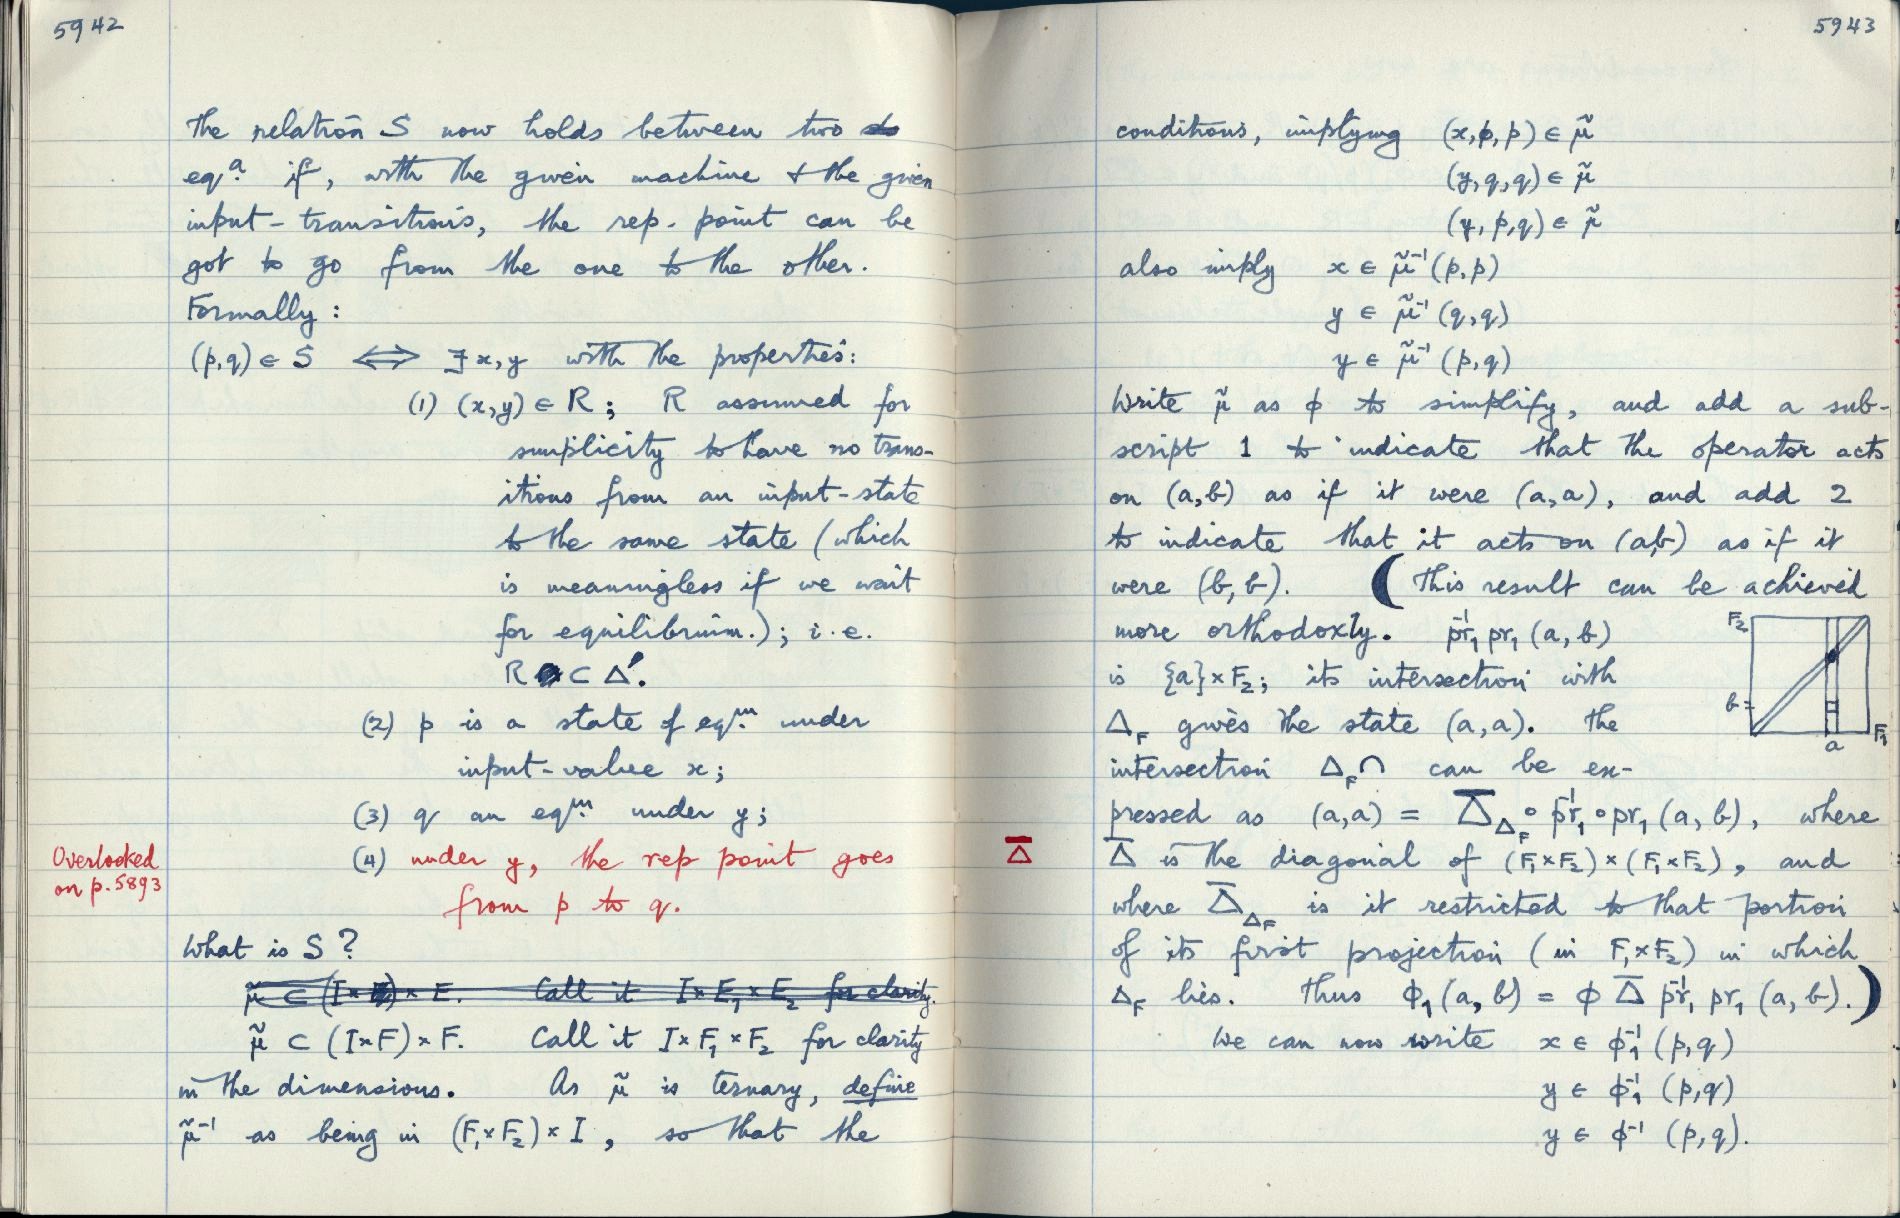 5942
The relation S now holds between two st
eqa. if, with the given machine & the given
input-transitions, the rep. point can be
got to go from the one to the other.
Formally:
(p,q) ∈ S ⟺ ∃ x,y with the properties:
(1) (x,y) ∈ R; R assumed for
simplicity to have no trans-
itions from an input-state
to the same state (which
is meaningless if we wait
for equilibrium.); i.e.
R ⊂ Δ'.
(2) p is a state of eqm. under
input-value x;
(3) q an eqm. under y;
Overlooked
on p.5893
(4) under y, the rep point goes
from p to q.
What is S?
μ̃ ⊂ (I×E)×E. Call it I×E₁×E₂ for clarity.
μ̃ ⊂ (I×F)×F. Call it I×F₁×F₂ for clarity
in the dimensions. As μ̃ is ternary, define
μ̃⁻¹ as being in (F₁×F₂)×I, so that the
5943
conditions, implying (x,p,p) ∈ μ̃
(y,q,q) ∈ μ̃
(y,p,q) ∈ μ̃
also imply x ∈ μ̃⁻¹(p,p)
y ∈ μ̃⁻¹(q,q)
y ∈ μ̃⁻¹(p,q)
Write μ̃ as ϕ to simplify, and add a sub-
script 1 to indicate that the operator acts
on (a,b) as if it were (a,a), and add 2
to indicate that it acts on (a,b) as if it
were (b,b). (This result can be achieved
more orthodoxly. pr₁⁻¹ pr₁ (a,b)
is {a}×F₂; its intersection with
Δ_F gives the state (a,a). The
intersection Δ_F∩ can be ex-
pressed as (a,a) = Δ̅_Δ_F ∘ pr₁⁻¹ ∘ pr₁ (a,b), where
Δ̅
Δ̅ is the diagonal of (F₁×F₂)×(F₁×F₂), and
where Δ̅_Δ_F is it restricted to that portion
of its first projection (in F₁×F₂) in which
Δ_F lies. Thus ϕ₁(a,b) = ϕ Δ̅ pr₁⁻¹ pr₁ (a,b).)
We can now write x ∈ ϕ₁⁻¹ (p,q)
y ∈ ϕ₁⁻¹ (p,q)
y ∈ ϕ⁻¹ (p,q).
F₂
b
a
F₁